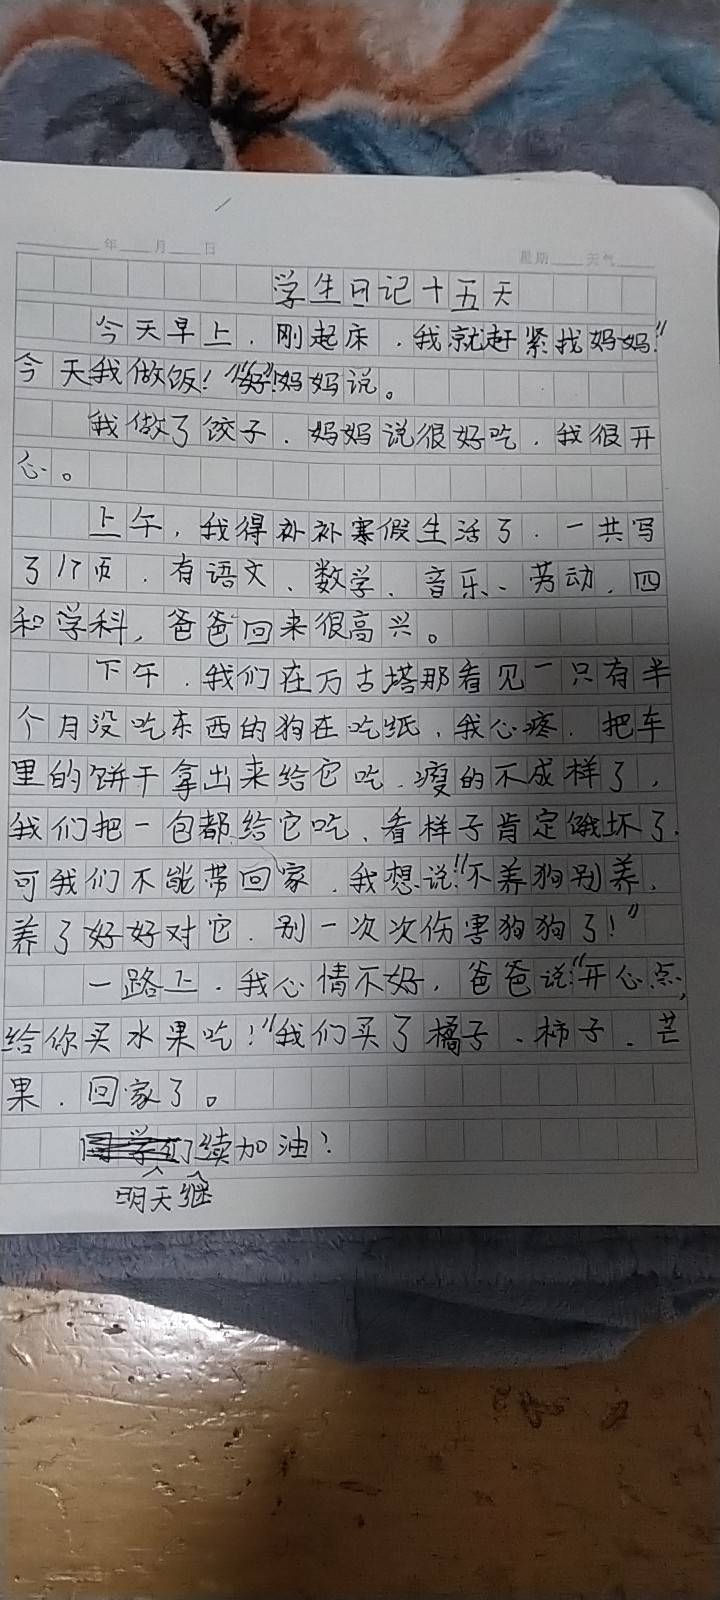 年 月 日 星期 天气
学生日记十五天
今天早上,刚起床,我就赶紧找妈妈:"
今天我做饭!""好!"妈妈说。
我做了饺子,妈妈说很好吃,我很开
心。
上午,我得补补寒假生活了,一共写
了17页,有语文、数学、音乐、劳动,四
和学科,爸爸回来很高兴。
下午,我们在万古塔那看见一只有半
个月没吃东西的狗在吃纸,我心疼,把车
里的饼干拿出来给它吃,瘦的不成样了,
我们把一包都给它吃,看样子肯定饿坏了,
可我们不能带回家,我想说:"不养狗别养,
养了好好对它,别一次次伤害狗狗了!"
一路上,我心情不好,爸爸说:"开心点,
给你买水果吃!"我们买了橘子、柿子、芒
果,回家了。
续加油!
明天继